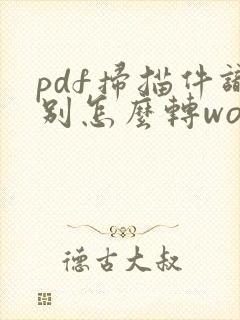 pdf掃描件
別怎麼轉wo
德古大叔